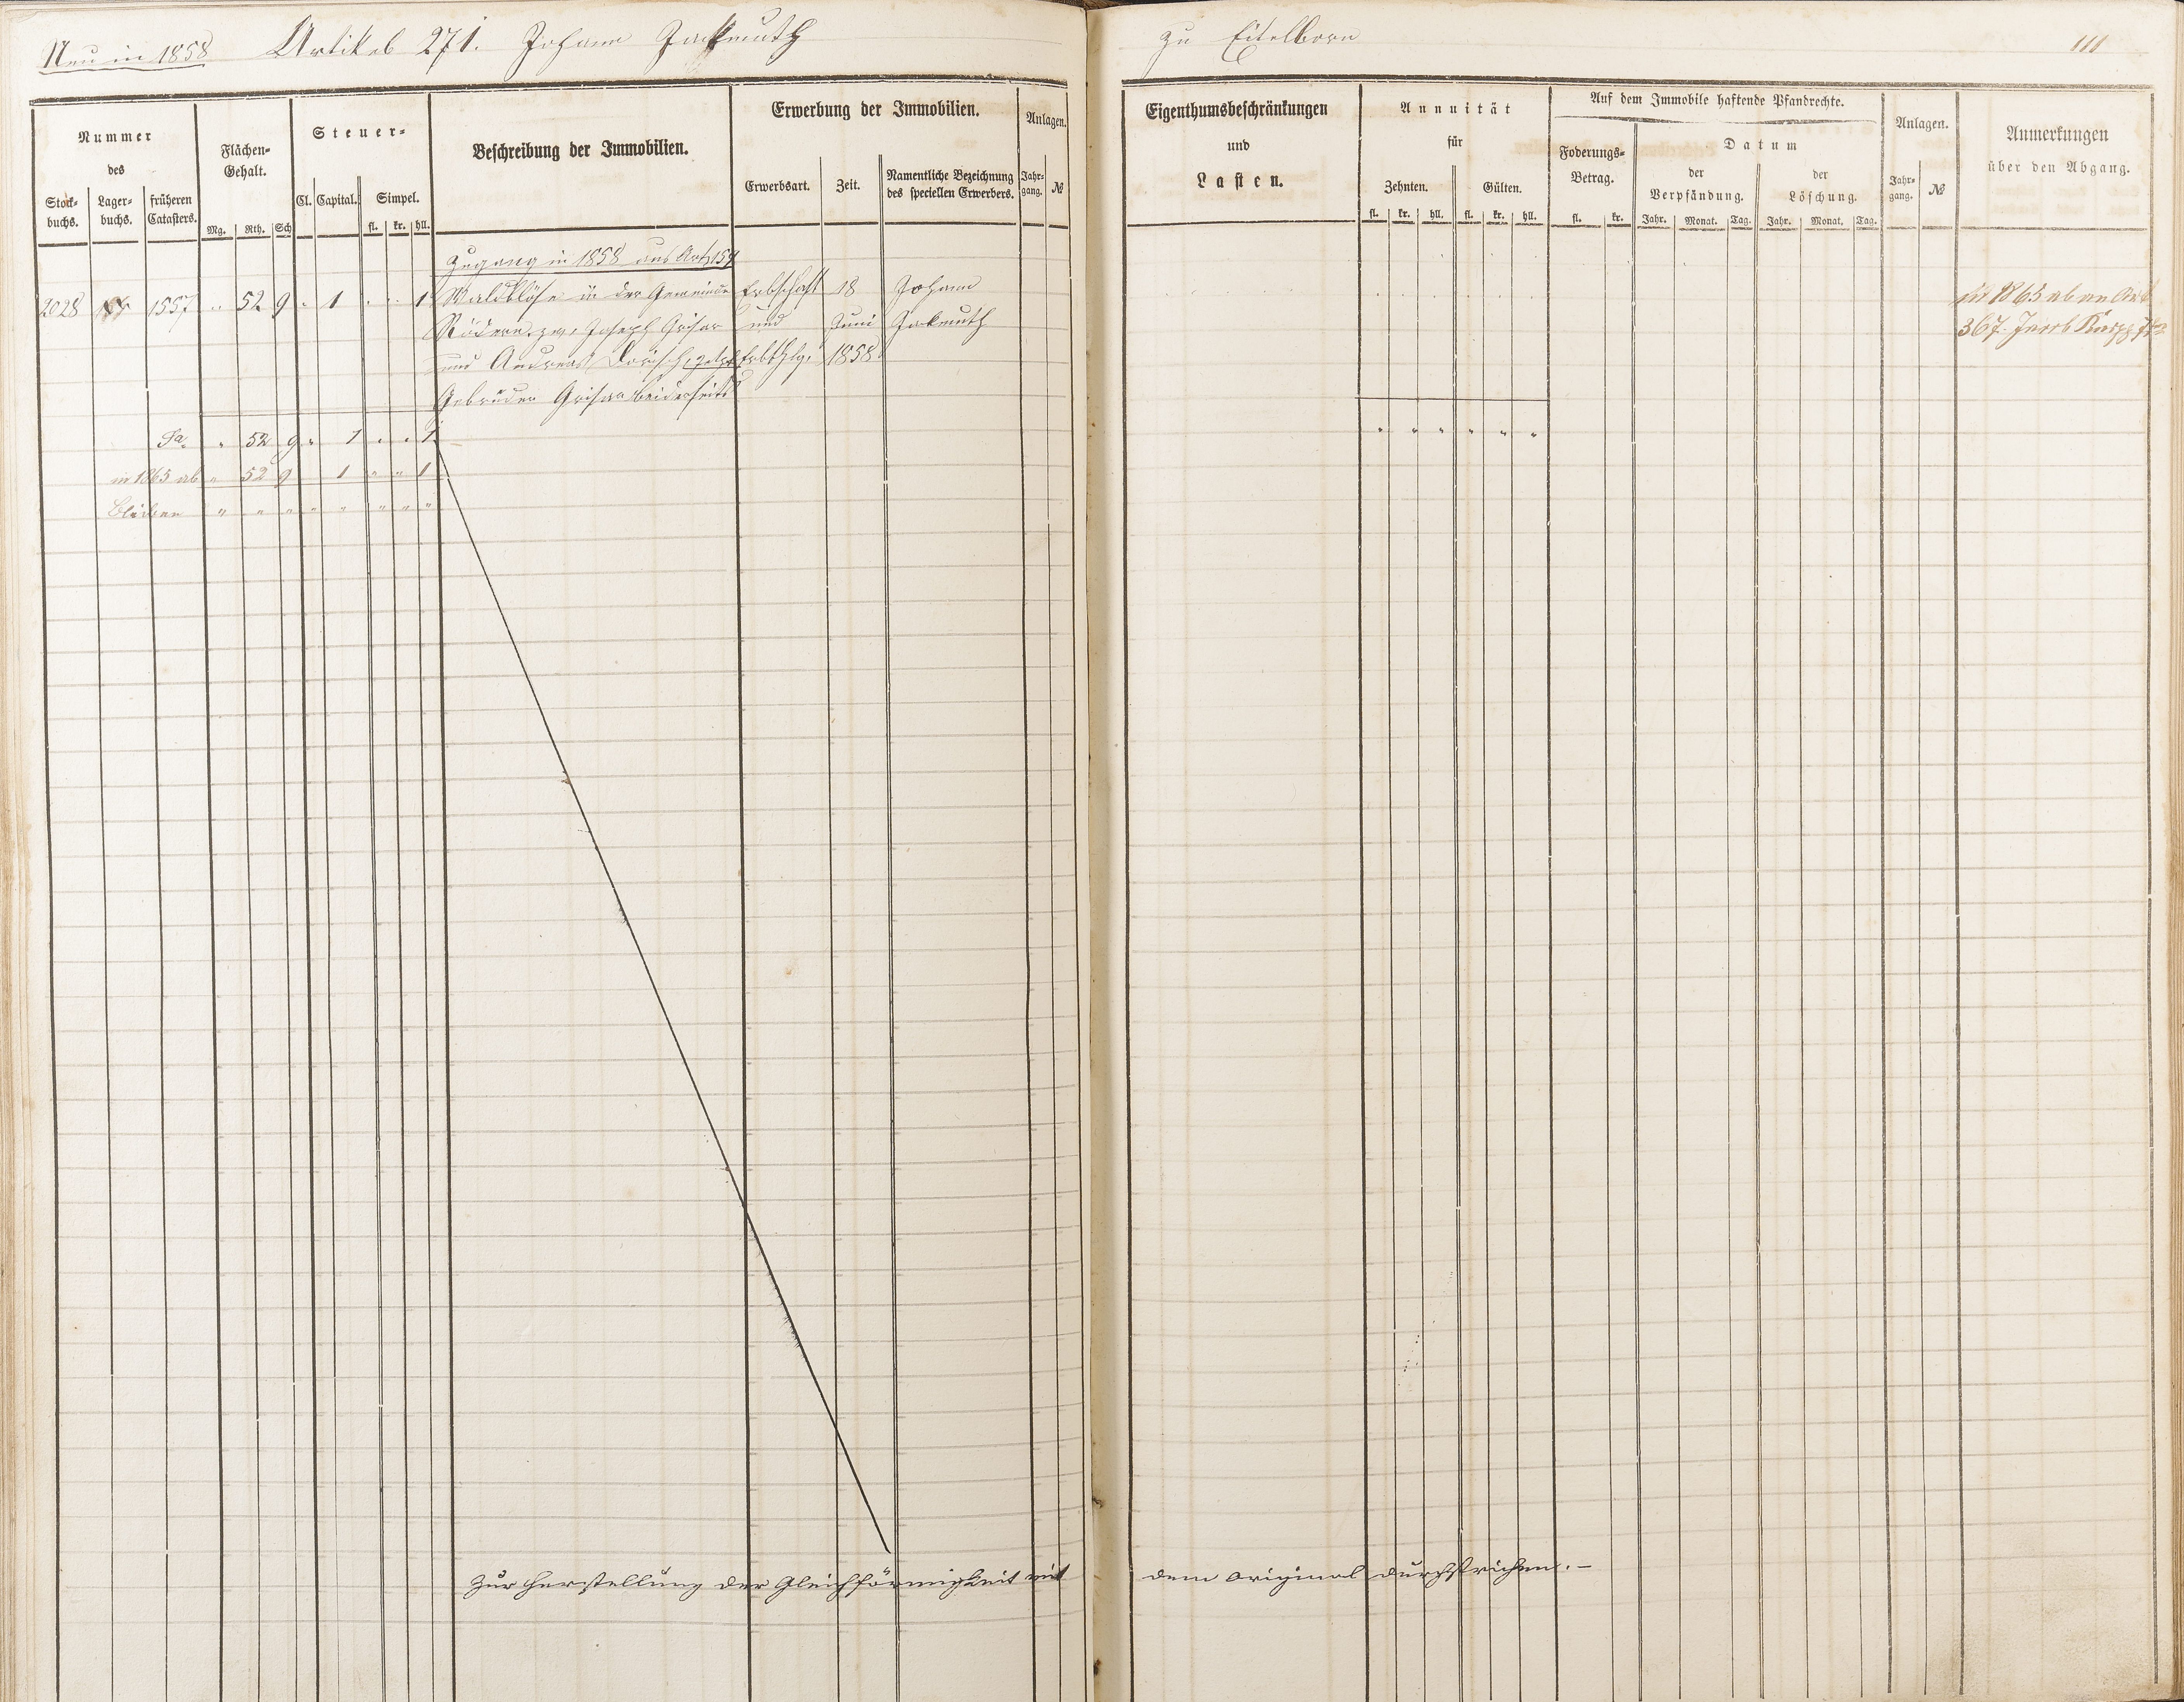 Neu in 1858 Artikel 271. Johann Jackmuth
zu Eitelborn
111
Nummer
des
Stock-
buchs.
Lager-
buchs.
früheren
Catasters.
Flächen-
Gehalt.
Mg. Rth. Sch
Steuer-
Cl. Capital. Simpel.
fl. kr. hll.
Beschreibung der Immobilien.
Erwerbung der Immobilien.
Erwerbsart. Zeit.
Namentliche Bezeichnung
des speciellen Erwerbers.
Anlagen.
Jahr-
gang. №
Eigenthumsbeschränkungen
und
Lasten.
Annuität
für
Zehnten. Gülten.
fl. kr. hll. fl. kr. hll.
Auf dem Immobile haftende Pfandrechte.
Foderungs-
Betrag.
fl. kr.
Datum
der
Verpfändung.
Jahr. Monat. Tag.
der
Löschung.
Jahr. Monat. Tag.
Anlagen.
Jahr-
gang. №
Anmerkungen
über den Abgang.
Zugang in 1858 aus Art 157
2028 1557 " 52 9 " 1 " " 1 Waldblöse in der Gemeinde Erbschaft 18 Johann
Rödern, zw. Joseph Grisar und Juni Jackmuth
und Andreas 1858
Gebrüder Grisar beiderseits
in 1865 ab an Art
367. Jacob
Sa. " 52 9 " 1 " " 1
" " " " " "
in 1865 ab " 52 9 1 " " 1
Bleiben " " " " " " " "
Zur Herstellung der Gleichförmigkeit mit dem Original durchstrichen. –